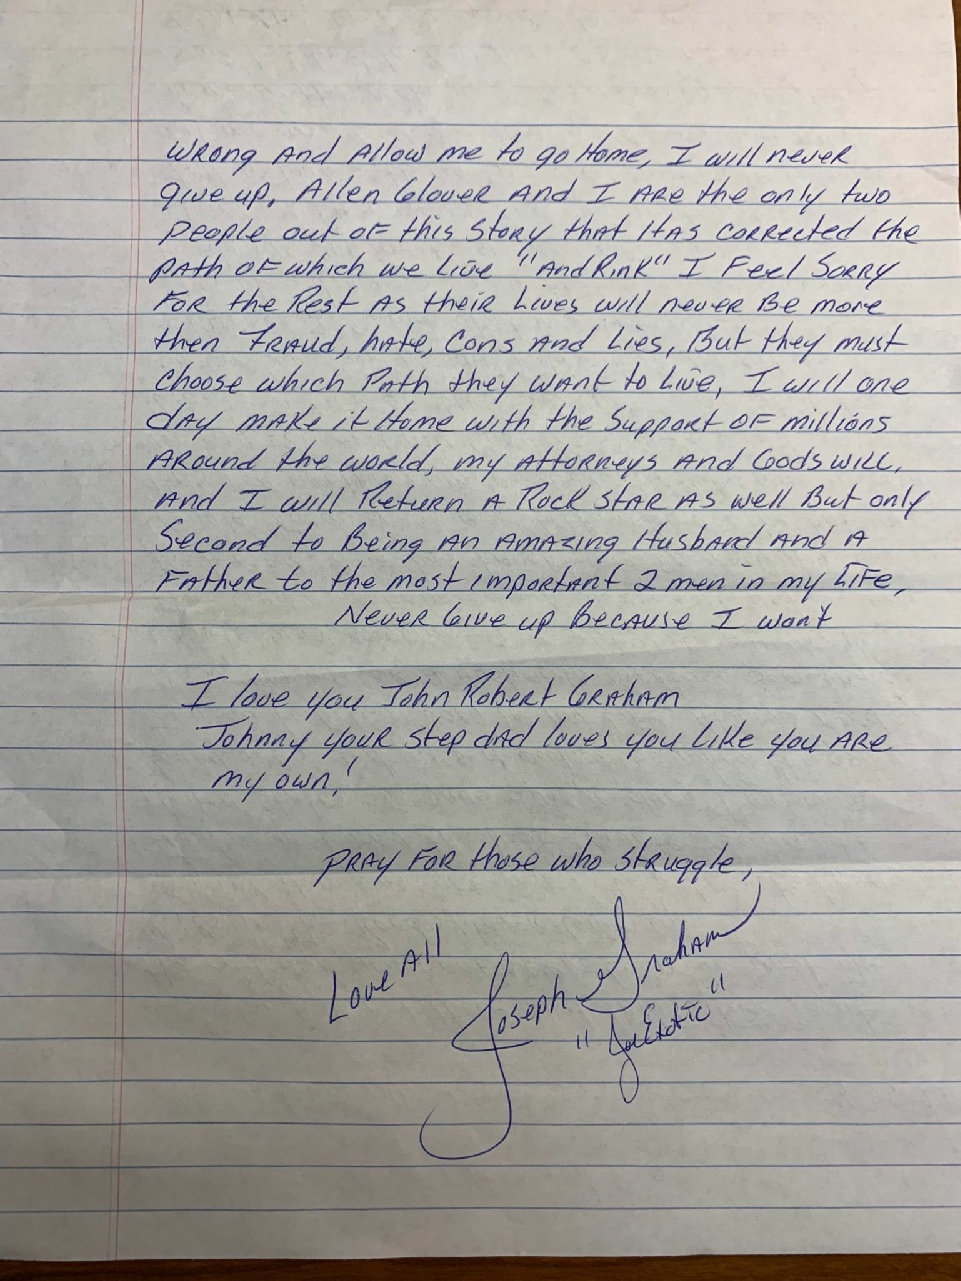 Wrong And Allow me to go Home, I will never
give up, Allen Glover And I Are the only two
People out of this Story that Has corrected the
path of which we Live "And Rink" I Feel Sorry
For the Rest As their Lives will never Be more
then Fraud, hate, Cons And Lies, But they must
Choose which Path they want to Live, I will one
day make it Home with the Support of millions
Around the world, my Attorneys And Gods will,
And I will Return A Rock Star As well But only
Second to Being An Amazing Husband And A
Father to the most important 2 men in my Life,
Never Give up Because I wont
I love you John Robert Graham
Johnny your step dad loves you Like you Are
my own!
Pray For those who struggle,
Love All
Joseph Graham
"Joe Exotic"